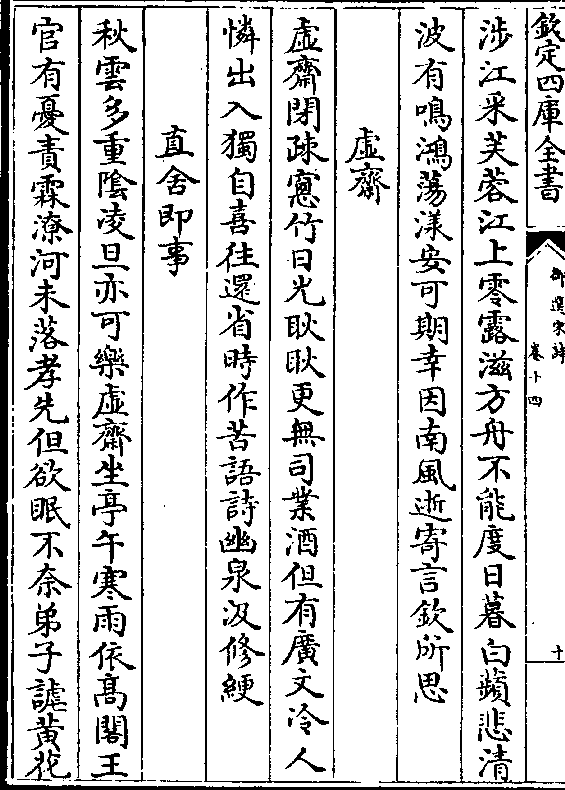 欽定四庫全書
御選宋詩
卷十四
十
涉江采芙蓉江上零露滋方舟不能度日暮白蘋悲清
波有鳴鴻蕩漾安可期幸因南風逝寄言欽所思
虛齋
虛齋閉疎窻竹日光耿耿更無司業酒但有廣文冷人
憐出入獨自喜往還省時作苦語詩幽泉汲修綆
直舍即事
秋雲多重隂凌旦亦可樂虛齋坐亭午寒雨依髙閣王
官有憂責霖潦河未落孝先但欲眠不奈弟子謔黃花